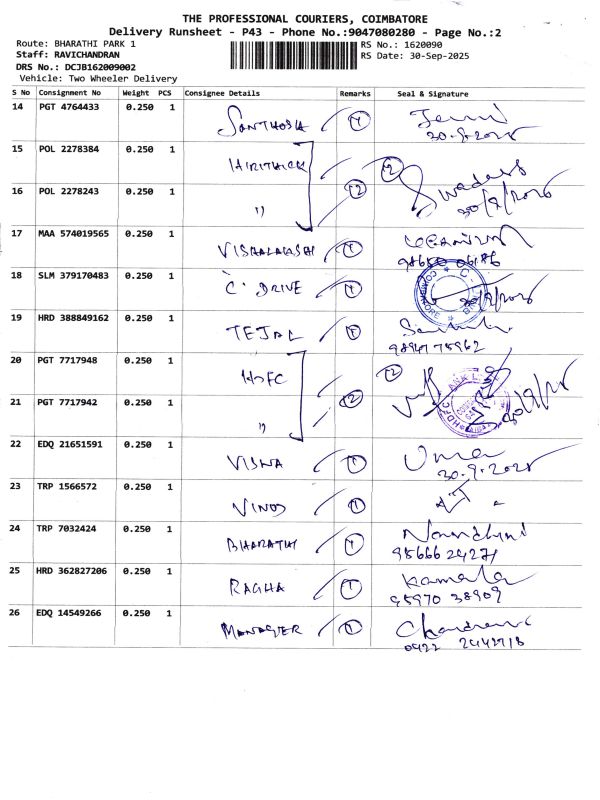 THE PROFESSIONAL COURIERS, COIMBATORE
Delivery Runsheet - P43 - Phone No.:9047080280 - Page No.:2
Route: BHARATHI PARK 1
RS No.: 1620090
Staff: RAVICHANDRAN
RS Date: 30-Sep-2025
DRS No.: DCJB162009002
Vehicle: Two Wheeler Delivery
S No Consignment No Weight PCS Consignee Details Remarks Seal & Signature
14 PGT 4764433 0.250 1 SANTHOSH 1
30-9-2025
15 POL 2278384 0.250 1 HIRITHICK 2
16 POL 2278243 0.250 1 " 2
17 MAA 574019565 0.250 1 VISHALAKSHI 1
18 SLM 379170483 0.250 1 C. DRIVE 1
19 HRD 388849162 0.250 1 TEJAL 1
98947 75962
20 PGT 7717948 0.250 1 HDFC 2
21 PGT 7717942 0.250 1 " 2
22 EDQ 21651591 0.250 1 VISWA 1 Uma
30-9-2025
23 TRP 1566572 0.250 1 VINOD 1
24 TRP 7032424 0.250 1 BHARATHI 1 Nandhini
98666 24271
25 HRD 362827206 0.250 1 RAGHA 1 Kamala
95970 38909
26 EDQ 14549266 0.250 1 MANAGER 1
0422 2442718